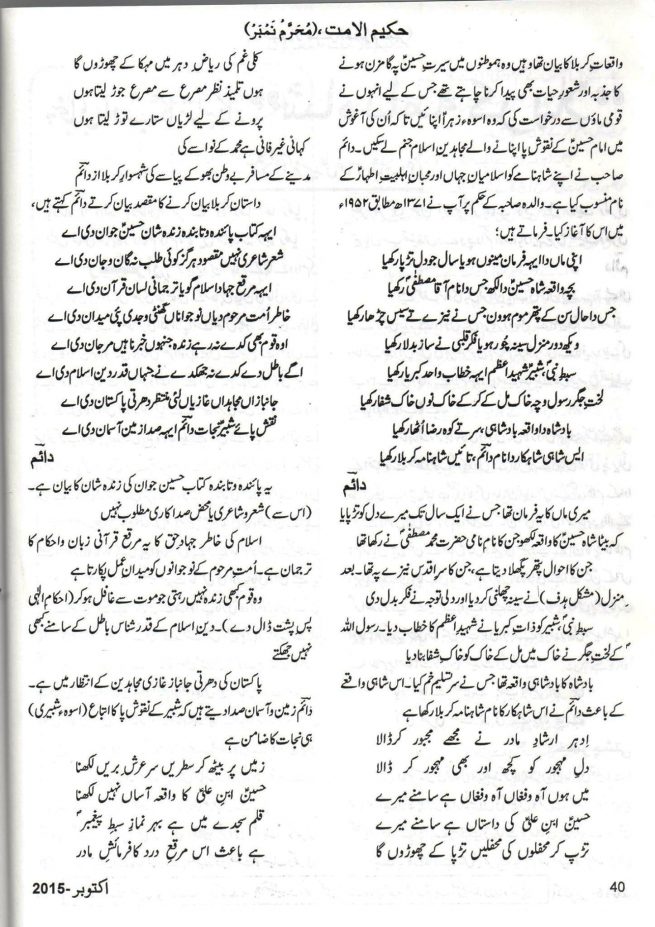 حکیم الامت، (مُحَرَّمْ نَمْبَرْ)
واقعاتِ کربلا کا بیان تھا وہیں وہ ہموطنوں میں سیرتِ حسینؑ پہ گامزن ہونے
کا جذبہ اور شعورِ حیات بھی پیدا کرنا چاہتے تھے جس کے لیے انہوں نے
قومی ماؤں سے درخواست کی کہ وہ اسوہء زہراؑ اپنائیں تاکہ اُن کی آغوش
میں امام حسینؑ کے نقوشِ پا اپنانے والے مجاہدینِ اسلام جنم لے سکیں۔ دائم
صاحب نے اپنے شاہنامے کو اسلامیانِ جہاں اور محبانِ اہلبیتِ اطہارؑ کے
نام منسوب کیا ہے۔ والدہ صاحبہ کے حکم پر آپ نے ۱۳۷۱ھ مطابق ۱۹۵۲ء
میں اس کا آغاز کیا۔ فرماتے ہیں؛
اپنی ماں دا ایہہ فرمان مینوں ہویا سال جو دل تڑپا رکھیا
بچہ واقعہ شاہ حسینؑ دا لکھ جس دا نام آقا مصطفٰیؐ رکھیا
جس دا حال سن کے پتھر موم ہوون جس نے نیزے تے سیس چڑھا رکھیا
ویکھ دور منزل سینہ چور ہویا فکر قلبی نے ساز بدلا رکھیا
سبطِ نبیؐ شبیرؑ شہیدِ اعظم ایہہ خطاب واحد کبریا رکھیا
لختِ جگر رسول وچہ خاک مل کے کر کے خاک نوں خاکِ شفا رکھیا
بادشاہ دا واقعہ بادشاہی، سر تے کوہ رضا اُٹھا رکھیا
ایس شاہی شاہکار دا نام دائم، تائیں شاہنامہ کربلا رکھیا
دائم
میری ماں کا یہ فرمان تھا جس نے ایک سال تک میرے دل کو تڑپایا
کہ بیٹا شاہ حسینؑ کا واقعہ لکھو جن کا نامِ نامی حضرت محمد مصطفٰیؐ نے رکھا تھا
جن کا احوال پتھر پگھلا دیتا ہے، جن کا سرِ اقدس نیزے پہ تھا۔ بعد
منزل (مشکل ہدف) نے سینہ چھلنی کر دیا اور دلی توجہ نے فکر بدل دی
سبطِ نبیؐ، شبیرؑ کو ذاتِ کبریا نے شہیدِ اعظم کا خطاب دیا۔ رسول اللہ
ؐ کے لختِ جگر نے خاک میں مل کے خاک کو خاکِ شفا بنا دیا
بادشاہ کا بادشاہی واقعہ تھا جس نے سرِ تسلیم خم کیا۔ اس شاہی واقعے
کے باعث دائم نے اس شاہکار کا نام شاہنامہ کربلا رکھا ہے
اِدہر ارشادِ مادر نے مجھے مجبور کر ڈالا
دلِ مہجور کو کچھ اور بھی مہجور کر ڈالا
میں ہوں آہ و فغاں آہ و فغاں ہے سامنے میرے
حسینؑ ابنِ علیؑ کی داستاں ہے سامنے میرے
تڑپ کر محفلوں کی محفلیں تڑپا کے چھوڑوں گا
کلی غم کی ریاضِ دہر میں مہکا کے چھوڑوں گا
ہوں تلمیذِ نظر مصرع سے مصرع جوڑ لیتا ہوں
پرونے کے لیے لڑیاں ستارے توڑ لیتا ہوں
کہانی غیر فانی ہے محمدؐ کے نواسے کی
مدینے کے مسافر بے وطن بھوکے پیاسے کی شہسوارِ کربلا از دائم
داستانِ کربلا بیان کرنے کا مقصد بیان کرتے دائم کہتے ہیں،
ایہہ کتاب پائندہ و تابندہ زندہ شان حسینؑ جوان دی اے
شعر شاعری نہیں مقصود ہرگز کوئی طلب نہ گان و جان دی اے
ایہہ مرقع جہادِ اسلام کویا ترجمانی لسانِ قرآن دی اے
خاطر اُمتِ مرحوم دیاں نوجواناں گھنٹی وجدی پئی میدان دی اے
اوہ قوم بھی کدے نہ رہے زندہ جنہوں خبر ناہیں مر جان دی اے
اگے باطل دے کدے نہ جھکدے نے جنہاں قدر دینِ اسلام دی اے
جانبازاں مجاہداں غازیاں لئی منتظر دھرتی پاکستان دی اے
نقشِ پائے شبیرؑ نجات دائم ایہہ صدا زمین آسمان دی اے
دائم
یہ پائندہ و تابندہ کتاب حسین جوان کی زندہ شان کا بیان ہے۔
(اس سے) شعر و شاعری یا محض صداکاری مطلوب نہیں
اسلام کی خاطر جہادِ حق کا یہ مرقع قرآنی زبان و احکام کا
ترجمان ہے۔ اُمتِ مرحوم کے نوجوانوں کو میدانِ عمل پکارتا ہے
وہ قوم کبھی زندہ نہیں رہتی جو موت سے غافل ہو کر (احکامِ الٰہی
پسِ پشت ڈال دے)۔ دینِ اسلام کے قدر شناس باطل کے سامنے کبھی
نہیں جھکتے
پاکستان کی دھرتی جانباز غازی مجاہدین کے انتظار میں ہے۔
دائم زمین و آسمان صدا دیتے ہیں کہ شبیر کے نقوشِ پا کا اتباع (اسوہء شبیری)
ہی نجات کا ضامن ہے
زمیں پر بیٹھ کر سطریں سرِ عرشِ بریں لکھنا
حسینؑ ابنِ علیؑ کا واقعہ آساں نہیں لکھنا
قلم سجدے میں ہے بہرِ نمازِ سبطِ پیغمبرؐ
ہے باعث اس مرقعِ درد کا فرمائشِ مادر
40
اکتوبر -2015